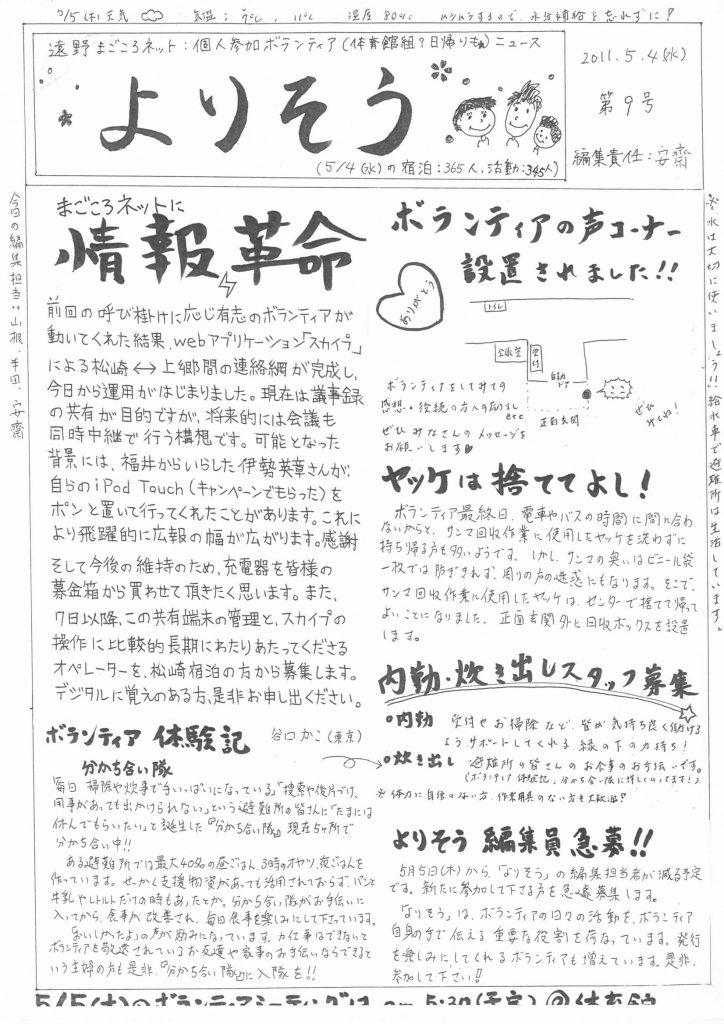 5/5(木)天気 気温: 11℃ 湿度 80% ムシムシするので、水分補給を忘れずに!
遠野まごころネット:個人参加ボランティア(体育館組?日帰りも)ニュース
よりそう
(5/4(水)の宿泊:365人,活動:345人)
2011.5.4(水)
第9号
編集責任:安齋
今日の編集担当:山根、半田、安齋
まごころネットに
情報革命
前回の呼び掛けに応じ有志のボランティアが
動いてくれた結果、webアプリケーション「スカイプ」
による松崎↔上郷間の連絡網が完成し、
今日から運用がはじまりました。現在は議事録
の共有が目的ですが、将来的には会議も
同時中継で行う構想です。可能となった
背景には、福井からいらした伊勢英章さんが、
自らのiPod Touch(キャンペーンでもらった)を
ポンと置いて行ってくれたことがあります。これに
より飛躍的に広報の幅が広がります。感謝
そして今後の維持のため、充電器を皆様の
募金箱から買わせて頂きたく思います。また、
7日以降、この共有端末の管理と、スカイプの
操作に比較的長期にわたりあたってくださる
オペレーターを、松崎宿泊の方から募集します。
デジタルに覚えのある方、是非お申し出ください。
ボランティア 体験記 谷口かこ(東京)
分かち合い隊
「毎日、掃除や炊事で手いっぱいになっている」「捜索や後片づけ、
用事があっても出かけられない」という避難所の皆さんに「たまには
休んでもらいたい」と誕生した『分かち合い隊』現在5ヶ所で
分かち合い中!!
ある避難所では最大40名の昼ごはん、3時のオヤツ、夜ごはんを
作っています。せっかく支援物資があっても活用されておらず、パンと
牛乳やレトルトだけの時もあったとか。分かち合い隊がお手伝いに
入ってから、食事が改善され、毎日食事を楽しみにして下さっています。
「おいしかったよ」の声が励みになっています。力仕事はできないと
ボランティアを敬遠されているお友達や家事のお手伝いならできると
いう主婦の方も是非、『分かち合い隊』に入隊を!!
ボランティアの声コーナー
設置されました!!
ありがとう
トイレ
会議室
受付
自動
ドア
正面玄関
ボランティアをしてみての
感想・後続の方への励まし
etc
ぜひみなさんのメッセージを
お願いします
ぜひ
ヤッケは捨ててよし!
ボランティア最終日、電車やバスの時間に間に合わ
ないからと、サンマ回収作業に使用したヤッケを洗わずに
持ち帰る方も多いようです。しかし、サンマの臭いはビニール袋
一枚では防ぎきれず、周りの方の迷惑にもなります。そこで、
サンマ回収作業に使用したヤッケは、センターで捨てて帰って
よいことになりました。正面玄関外に回収ボックスを設置
します。
内勤・炊き出しスタッフ募集
●内勤 受付やお掃除など、皆が気持ち良く働ける
ようサポートしてくれる縁の下の力持ち!
●炊き出し 避難所の皆さんのお食事のお手伝いです。
(ボランティア体験記、分かち合い隊に詳しくのってます!)
※体力に自信のない方、作業用具のない方も大歓迎?
よりそう 編集員急募!!
5月5日(木)から「よりそう」の編集担当者が減る予定
です。新たに参加して下さる方を急遽募集します。
「よりそう」は、ボランティアの日々の活動を、ボランティア
自身の手で伝える重要な役割を荷なっています。発行
を楽しみにしてくれるボランティアも増えています。是非、
参加して下さい!
※水は大切に使いましょう!!給水車で避難所は生活しています。
5/5(木)のボランティアミーティングは am 5:30(予定)@体育館